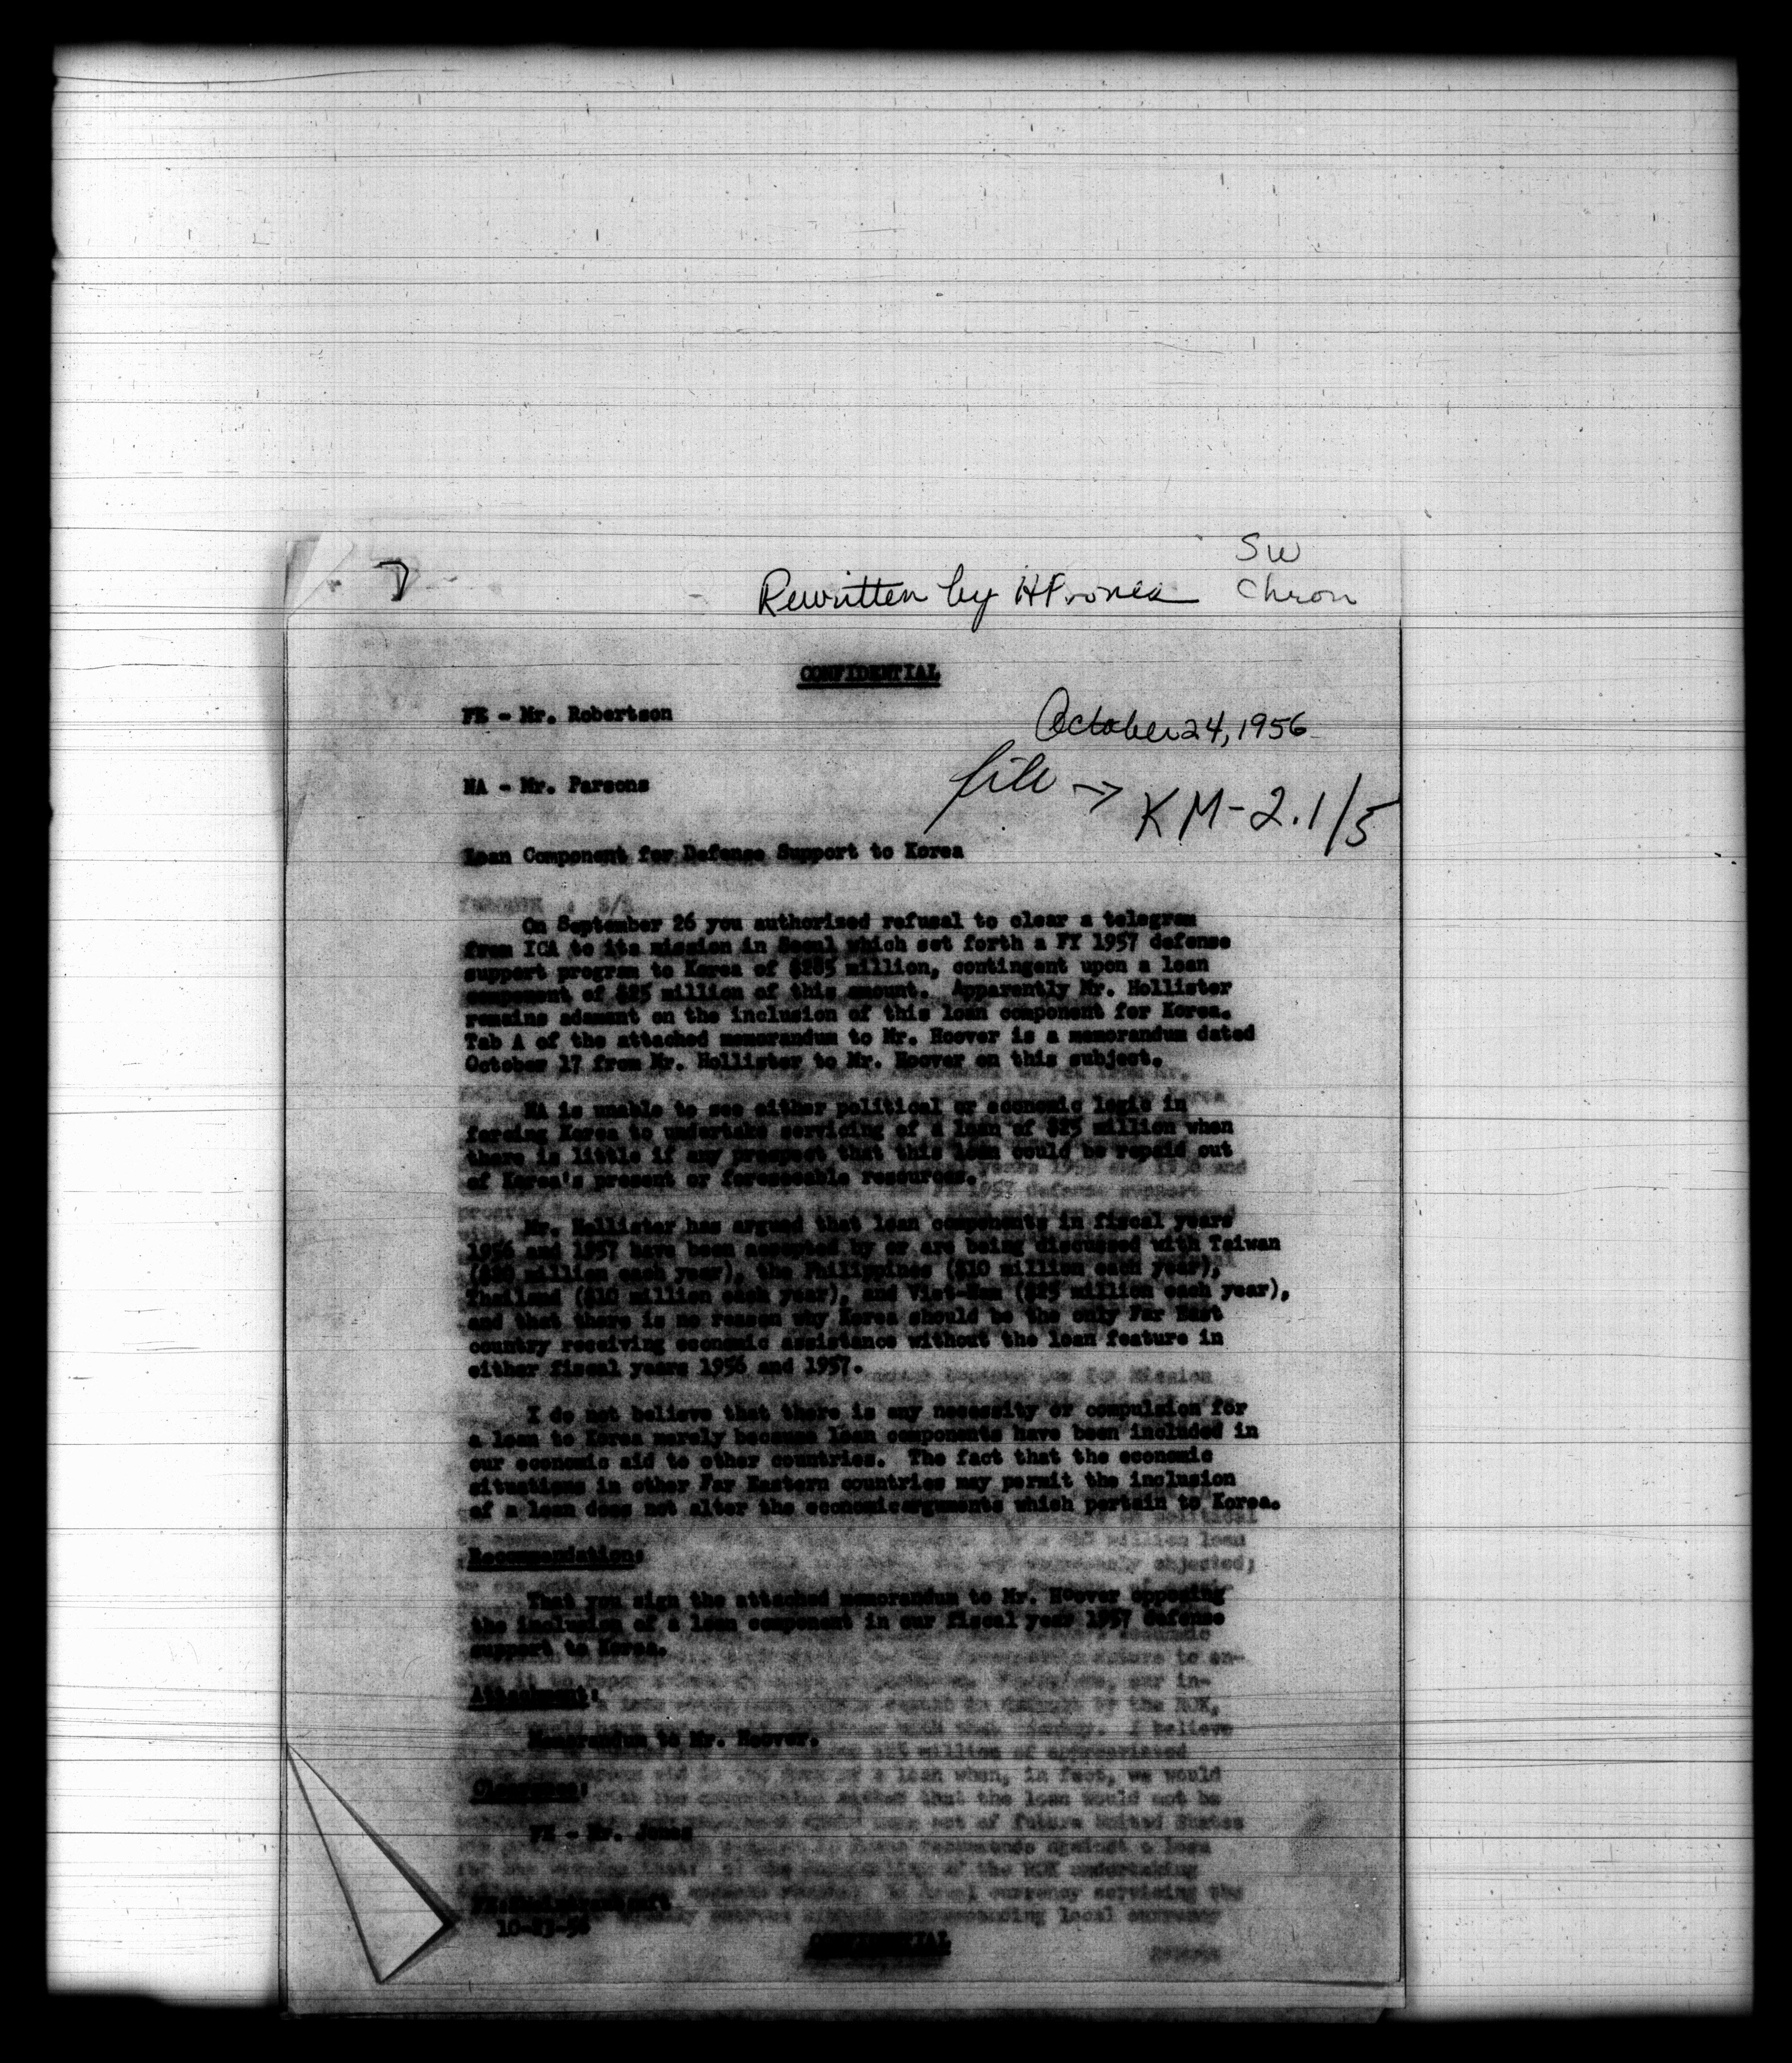 SW
Rewritten by HPJones Chron
CONFIDENTIAL
FE - Mr. Robertson
October 24, 1956
file → KM-2.1/5
NA - Mr. Parsons
Loan Component for Defense Support to Korea
On September 26 you authorized refusal to clear a telegram
from ICA to its mission in Seoul which set forth a FY 1957 defense
support program to Korea of $285 million, contingent upon a loan
component of $25 million of this amount. Apparently Mr. Hollister
remains adamant on the inclusion of this loan component for Korea.
Tab A of the attached memorandum to Mr. Hoover is a memorandum dated
October 17 from Mr. Hollister to Mr. Hoover on this subject.
NA is unable to see either political or economic logic in
forcing Korea to undertake servicing of a loan of $25 million when
there is little if any prospect that this loan could be repaid out
of Korea's present or foreseeable resources.
Mr. Hollister has argued that loan components in fiscal years
1956 and 1957 have been accepted by or are being discussed with Taiwan
million each year), the Philippines ($10 million each year),
Thailand ($10 million each year), and Viet-Nam ($25 million each year),
and that there is no reason why Korea should be the only Far East
country receiving economic assistance without the loan feature in
either fiscal years 1956 and 1957.
I do not believe that there is any necessity or compulsion for
a loan to Korea merely because loan components have been included in
our economic aid to other countries. The fact that the economic
situations in other Far Eastern countries may permit the inclusion
of a loan does not alter the economicarguments which pertain to Korea.
Recommendation:
That you sign the attached memorandum to Mr. Hoover opposing
the inclusion of a loan component in our fiscal year 1957 defense
support to Korea.
Attachment:
Memorandum to Mr. Hoover.
Clearance:
FE - Mr. Jones
10-23-56
CONFIDENTIAL